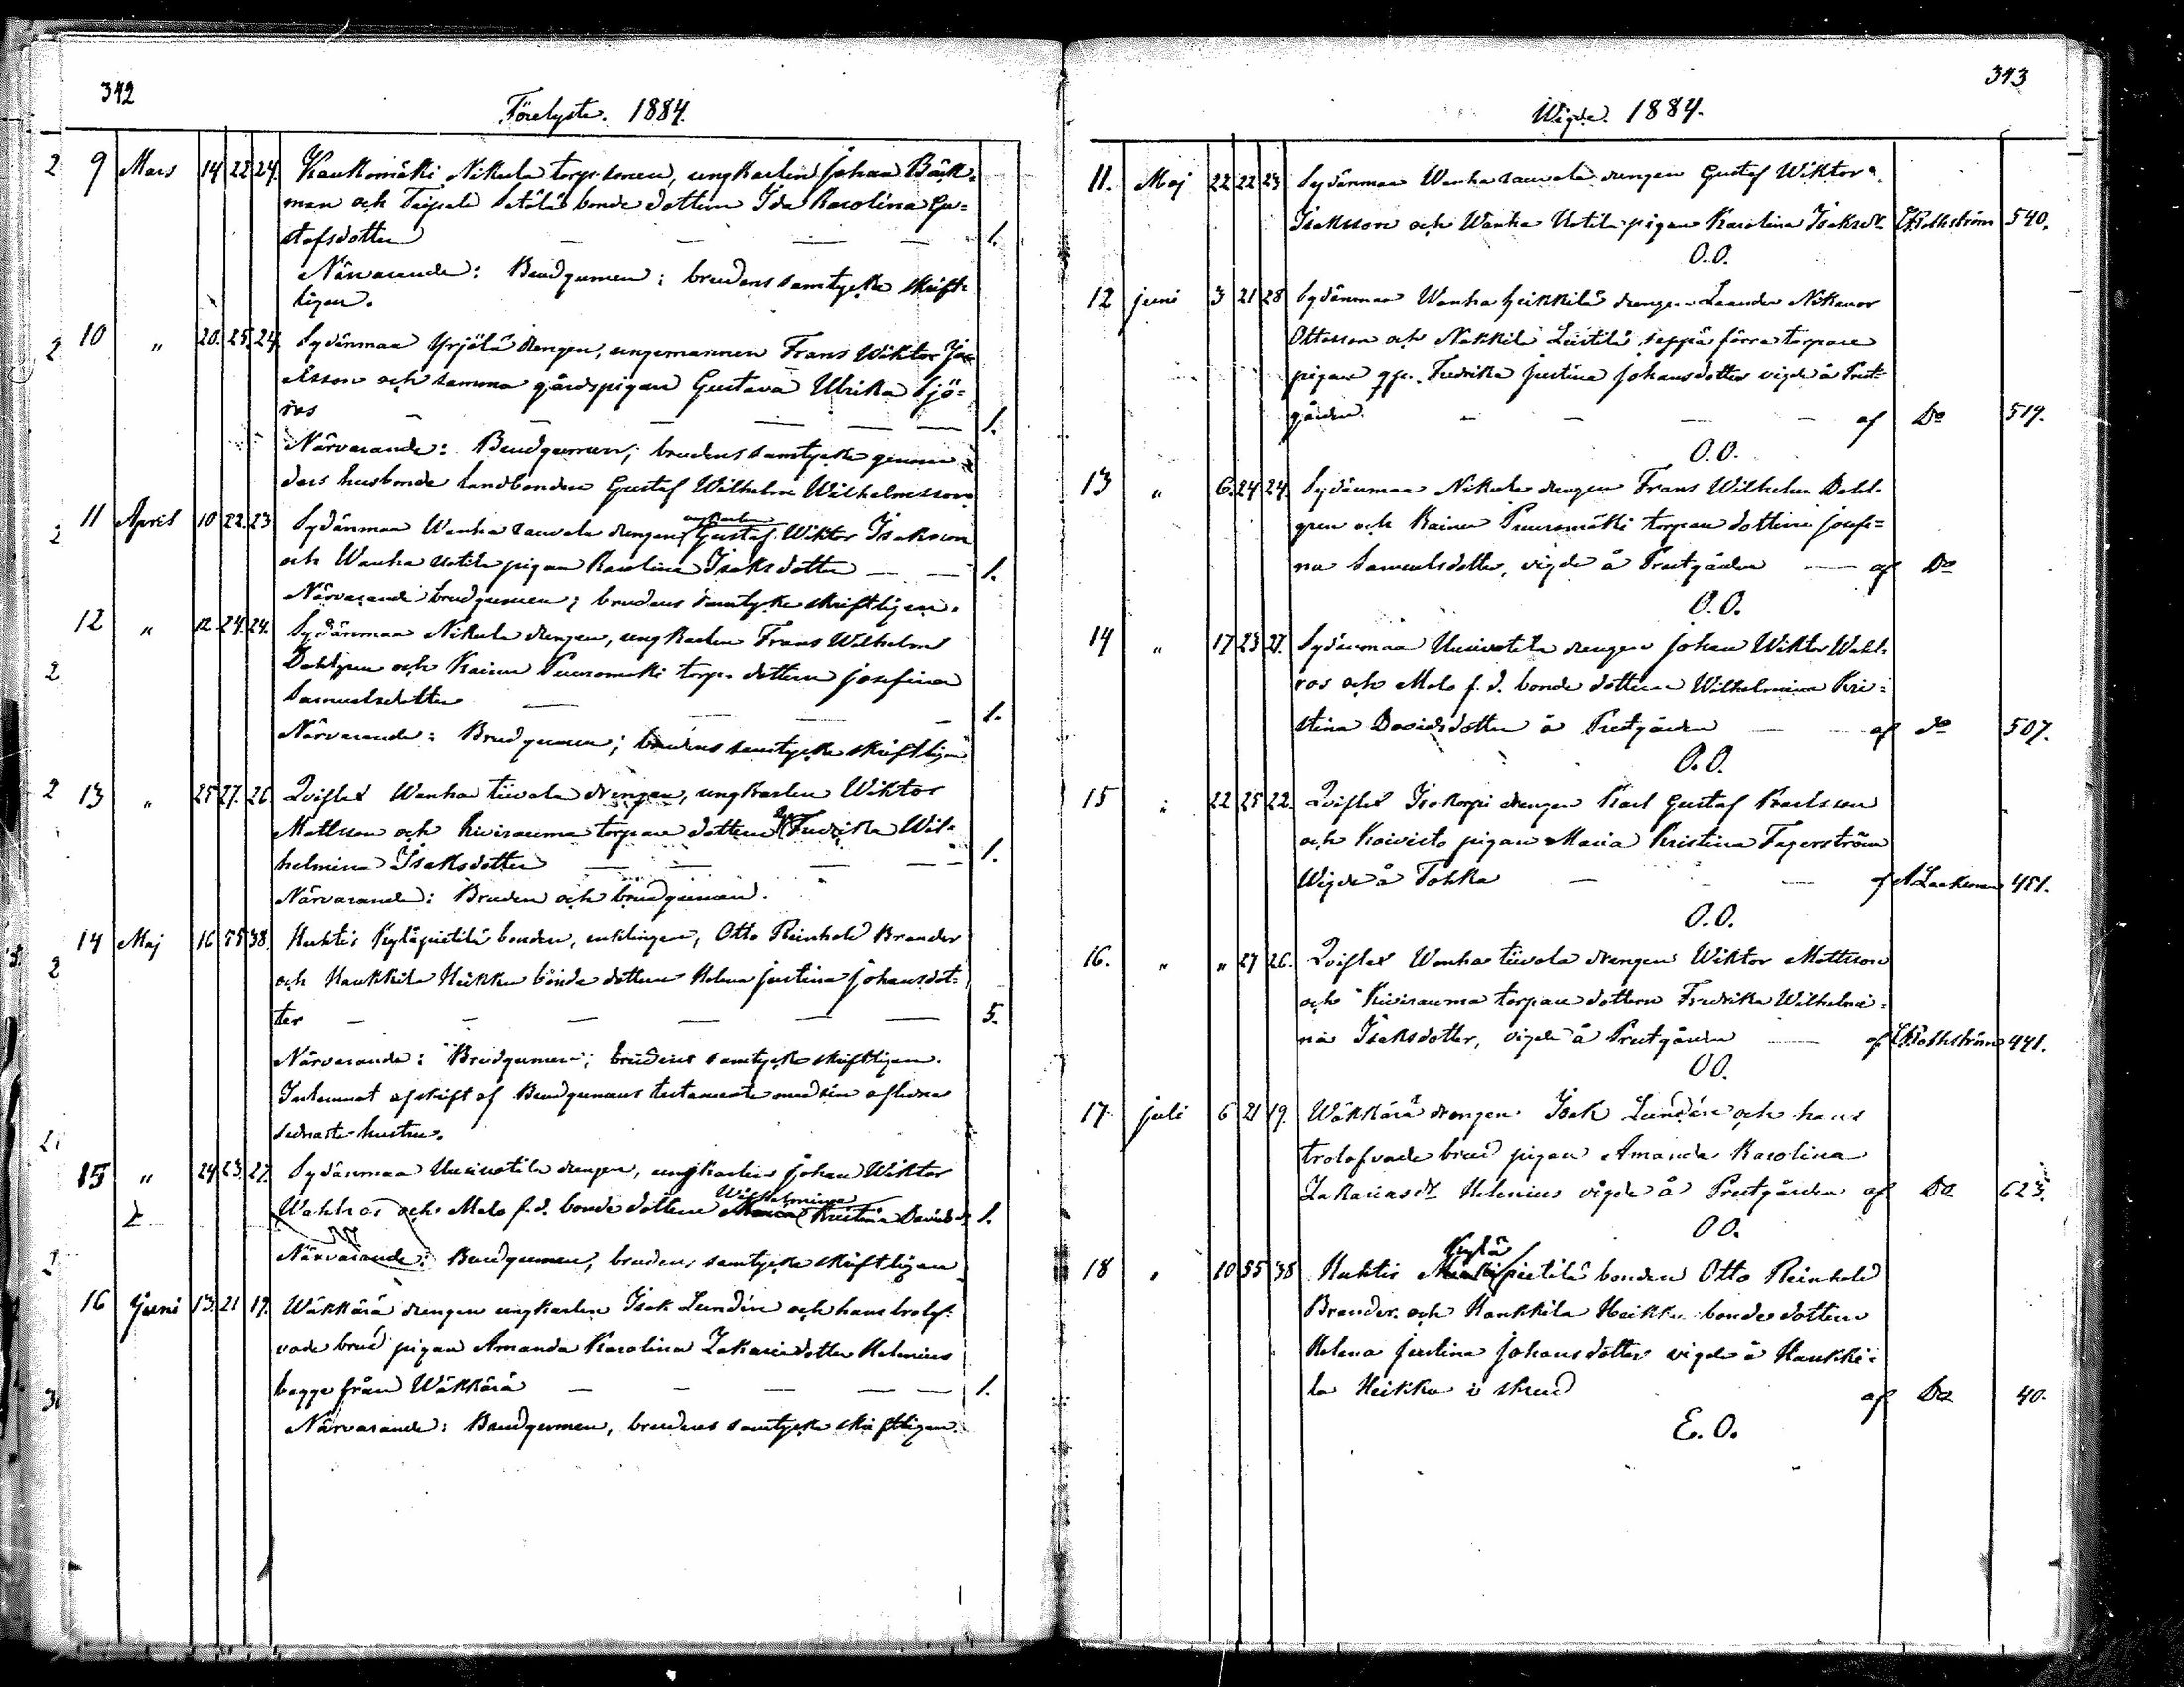 342
Förelyste. 1884.
2 9 Mars 14 22 24. Kaukomäki Nikula torp. sonen, ungkarlen Johan Bäck-
man och Taipale Setälä bonde dottern Ida Karolina Gu=
stafsdotter — — — — 1.
Närvarande: Brudgumen; brudens samtycke skrift-
ligen.
2 10 " 20. 25. 24. Sydänmaa Yrjölä drengen, ungemannen Frans Wiktor
elsson och samma gårdspigan Gustava Ulrika Sjö=
ros — — — — — 1.
Närvarande: Brudgumen; brudens samtycke genom
dess husbonde landbonden Gustaf Wilhelm Wilhelmsson
2 11 April 10 22. 23 Sydänmaa Wanha rauvola drengen, ungkarlen Gustaf Wiktor Isaksson
och Wanha Uotila pigan Karolina Isaksdotter — — 1.
Närvarande brudgumen; brudens samtycke skriftligen.
2 12 " 12. 24. 24. Sydänmaa Nikula drengen, ungkarlen Frans Wilhelm
Dahlgren och Kainu Puuromäki torp. dottern Josefina
Samuelsdotter — — — — 1.
Närvarande: Brudgumen; brudens samtycke skriftligen
2 13 " 25 27. 26 Qviflax Wanha tiivola drengen, ungkarlen Wiktor
Mattsson och Kivirauma torpare dottern Fredrika Wil-
helmina Isaksdotter — — — — 1.
Närvarande: Bruden och brudguman.
2 14 Maj 16 55 38. Huhtis Kyläpietilä bonden, enklingen, Otto Reinhold Brander
och Haukkila Heikku bonde dottern Helena Justina Johansdot-
ter — — — — — — 5.
Närvarande: Brudgumen; brudens samtycke skriftligen.
Inlemnat afskrift af Brudgumens testamente med sin aflidna
sednaste hustru.
15 " 24 23. 27. Sydänmaa Uusiuotila drengen, ungkarlen Johan Wiktor
2 Wahlros och Malo f. d. bonde dottern Maria Wilhelmina Kristina Davidsdr 1.
Närvarande: Brudgumen, brudens samtycke skriftligen
16 Juni 13. 21 19. Wäkkärä drengen ungkarlen Isak Lundén och hans trolof-
vade brud pigan Amanda Karolina Zakariedotter Helenius
3 begge från Wäkkärä — — — — — 1.
Närvarande: Brudgumen, brudens samtycke skriftligen.
343
Wigde. 1884.
11. Maj 22 22 23 Sydänmaa Wanha rauvola drengen Gustaf Wiktor
Isaksson och Wanha Uotila pigan Karolina Isaksdr 540.
O.O.
12 juni 3 21 28 Sydänmaa Wanha heikkilä drengen Leander Nikanor
Ottosson och Nakkila Leistilä seppä förra torpare
pigan Fredrika Justina Johansdotter vigde å Prest-
gården — — — — af Do 519.
O.O.
13 " 6. 24 24. Sydänmaa Nikula drengen Frans Wilhelm Dahl-
gren och Kainu Puuromäki torpare dottern Josefi=
na Samuelsdotter, vigde å Prestgården — af Do
O.O.
14 " 17 23 27. Sydänmaa Uusiuotila drengen Johan Wiktor Wahl-
ros och Malo f. d. bonde dottern Wilhelmina Kri=
stina Davidsdotter å Prestgården — af do 507.
O.O.
15 " 22 25 22. Qviflax Isokorpi drengen Karl Gustaf Karlsson
och Koivisto pigan Maria Kristina Fagerström
Wigde å Tohka — — — af 451.
O.O.
16. " " 27 26. Qviflax Wanha tiivola drengen Wiktor Mattsson
och Kivirauma torpare dottern Fredrika Wilhelmi=
na Isaksdotter, vigde å Prestgården — af 441.
O.O.
17 juli 6 21 19. Wäkkärä drengen Isak Lundén och hans
trolofvade brud pigan Amanda Karolina
Zakariasdr Helenius vigde å Prestgården af Do 623.
O.O.
18 " 10 55 38 Huhtis Kylä pietilä bonden Otto Reinhold
Brander och Haukkila Heikku bonde dottern
Helena Justina Johansdotter vigde å Haukki-
la Heikku i skrud af Do 40.
E.O.